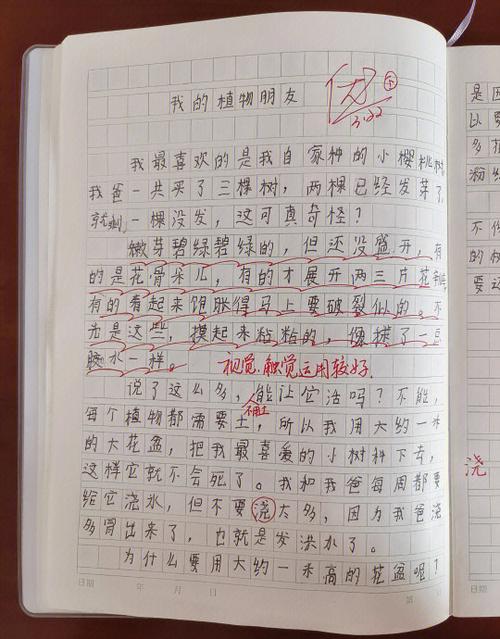 我的植物朋友
优
3.22
我最喜欢的是我自家种的小樱桃树,
我爸一共买了三棵树,两棵已经发芽了,
就剩一棵没发,这可真奇怪?
嫩芽碧绿碧绿的,但还没盛开,有
的是花骨朵儿,有的才展开两三片花
有的看起来饱胀得马上要破裂似的。不
光是这些,摸起来粘粘的,像搽了一豆
胶水一样。
视觉、触觉运用较好
说了这么多,能让它活吗?不能,
每个植物都需要土,所以我用大约一米
的大花盆,把我最喜爱的小树种下去,
这样它就不会死了。我和我爸每周都要
给它浇水,但不要浇太多,因为我爸浇
多冒出来了,也就是发洪水了。
为什么要用大约一米高的花盆呢?
日期 年 月 日
第
是因
以要
多
粉
不
的树
浇